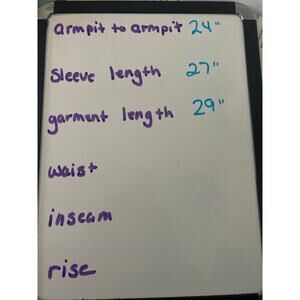 armpit to armpit 24"
Sleeve length 27"
garment length 29"
waist
inseam
rise